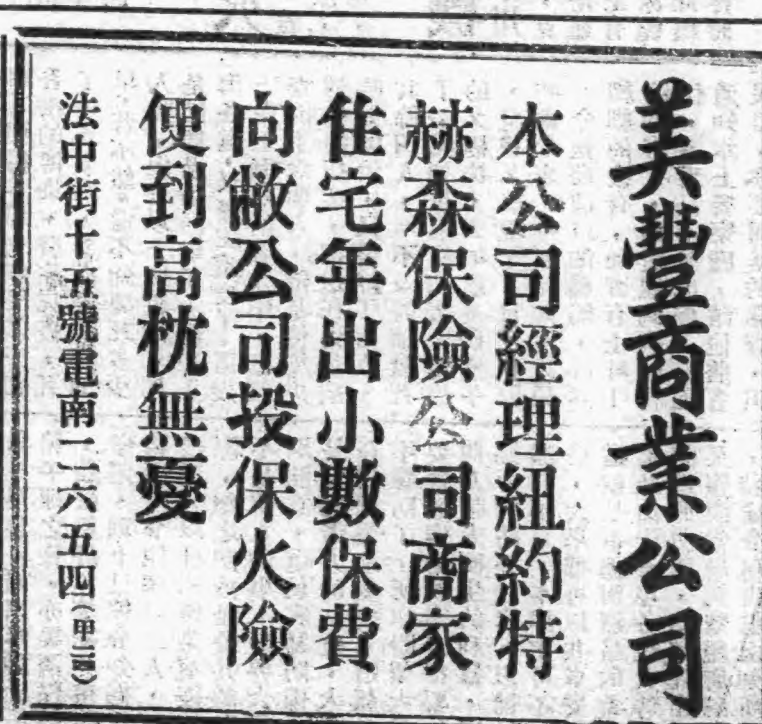 美豐商業公司
本公司經理紐約特
赫森保險公司商家
住宅年出小數保費
向敝公司投保火險
便到高枕無憂
法中街十五號電南一一六五四